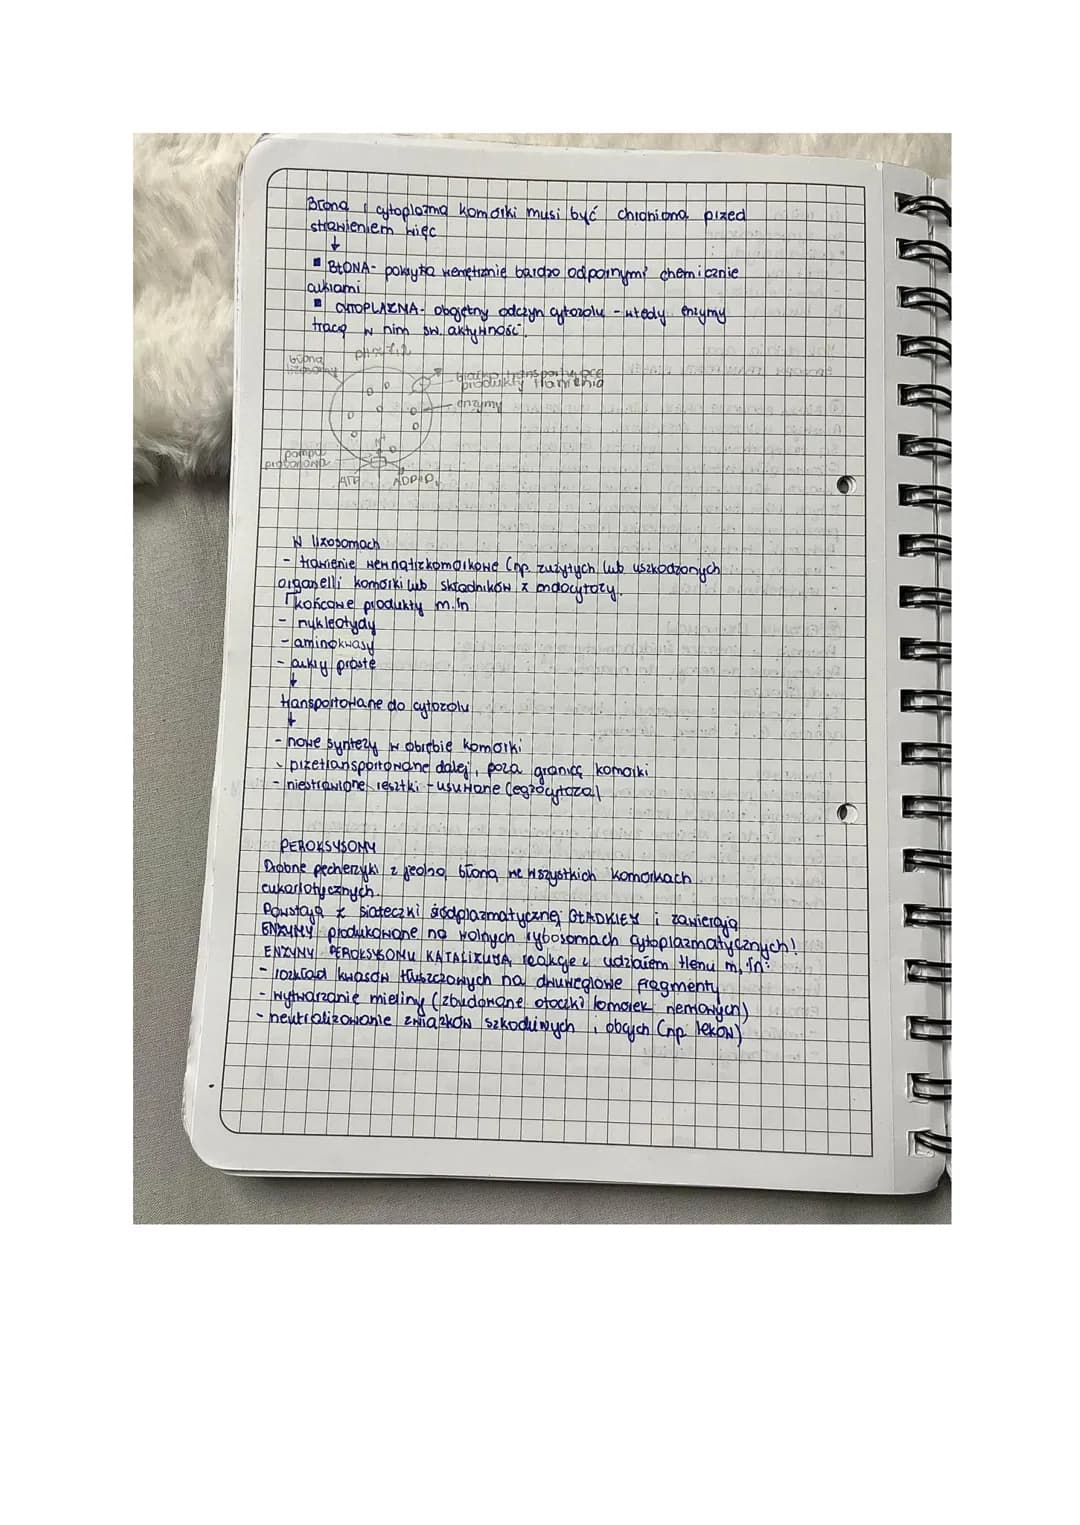 Błona i cytoplazma komórki musi być chroniona przed
strawieniem więc
↓
▪ BŁONA - pokryta wewnętrznie bardzo odpornymi chemicznie
cukrami
▪ CYTOPLAZMA - obojętny odczyn cytozolu - wtedy enzymy
tracą w nim sw. aktywność.
pH ≈ 7,2
błona
lizosomu
białko transportujące
produkty trawienia
enzymy
H+
pompa
protonowa
ATP ADP+Pi
W lizosomach
- trawienie wewnątrzkomórkowe (np. zużytych lub uszkodzonych
organelli komórki lub składników z endocytozy.
końcowe produkty m.in
- nukleotydy
- aminokwasy
- cukry proste
↓
transportowane do cytozolu
↓
- nowe syntezy w obrębie komórki
- przetransportowane dalej, poza granicę komórki
- niestrawione resztki - usuwane (egzocytoza)
PEROKSYSOMY
Drobne pęcherzyki z jedną błoną we wszystkich komórkach
eukariotycznych.
Powstają z siateczki śródplazmatycznej GŁADKIEJ i zawierają
ENZYMY produkowane na wolnych rybosomach cytoplazmatycznych!
ENZYMY PEROKSYSOMU KATALIZUJĄ reakcje z udziałem tlenu m.in:
- rozkład kwasów tłuszczowych na dwuwęglowe fragmenty
- wytwarzanie mieliny (zbudowane otoczki komórek nerwowych)
- neutralizowanie związków szkodliwych i obcych (np. leków)